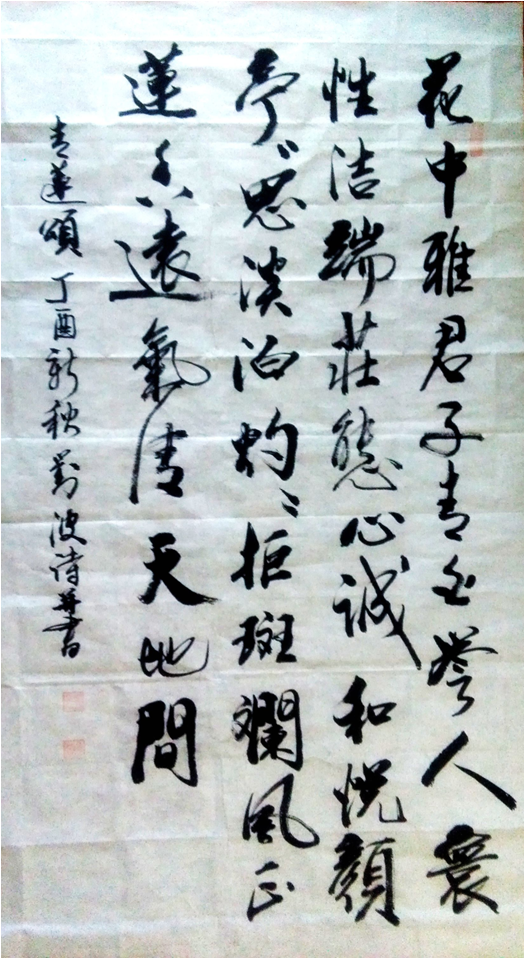 花中雅君子青白誉人寰
性洁端莊態心诚和悦顏
亭〻思淡泊灼〻拒斑斕風正
蓮香遠氣清天地間
青蓮頌 丁酉新秋 劉波诗并書